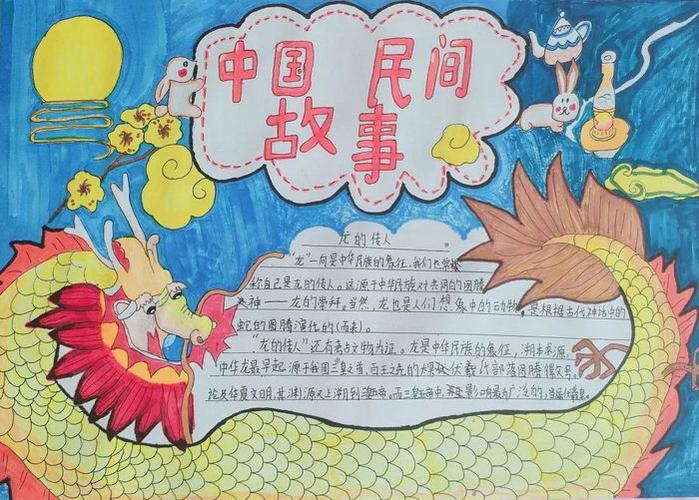 中国 民间
故事
龙的传人
"龙"一向是中华民族的象征,我们也常
称自己是龙的传人。这源于中华民族对共同的图腾
之神——龙的崇拜。当然,龙也是人们想象中的动物,是根据古代神话中的
蛇的图腾演化的(而来)。
"龙的传人"还有考古文物为证。龙是中华民族的象征,溯本求源,
中华龙最早起源于我国三皇之首,而王之先的太昊伏羲氏部落图腾
论及华夏文明,其渊源又上溯到三皇五帝。而三皇五帝中,影响最为广泛的,当属伏羲